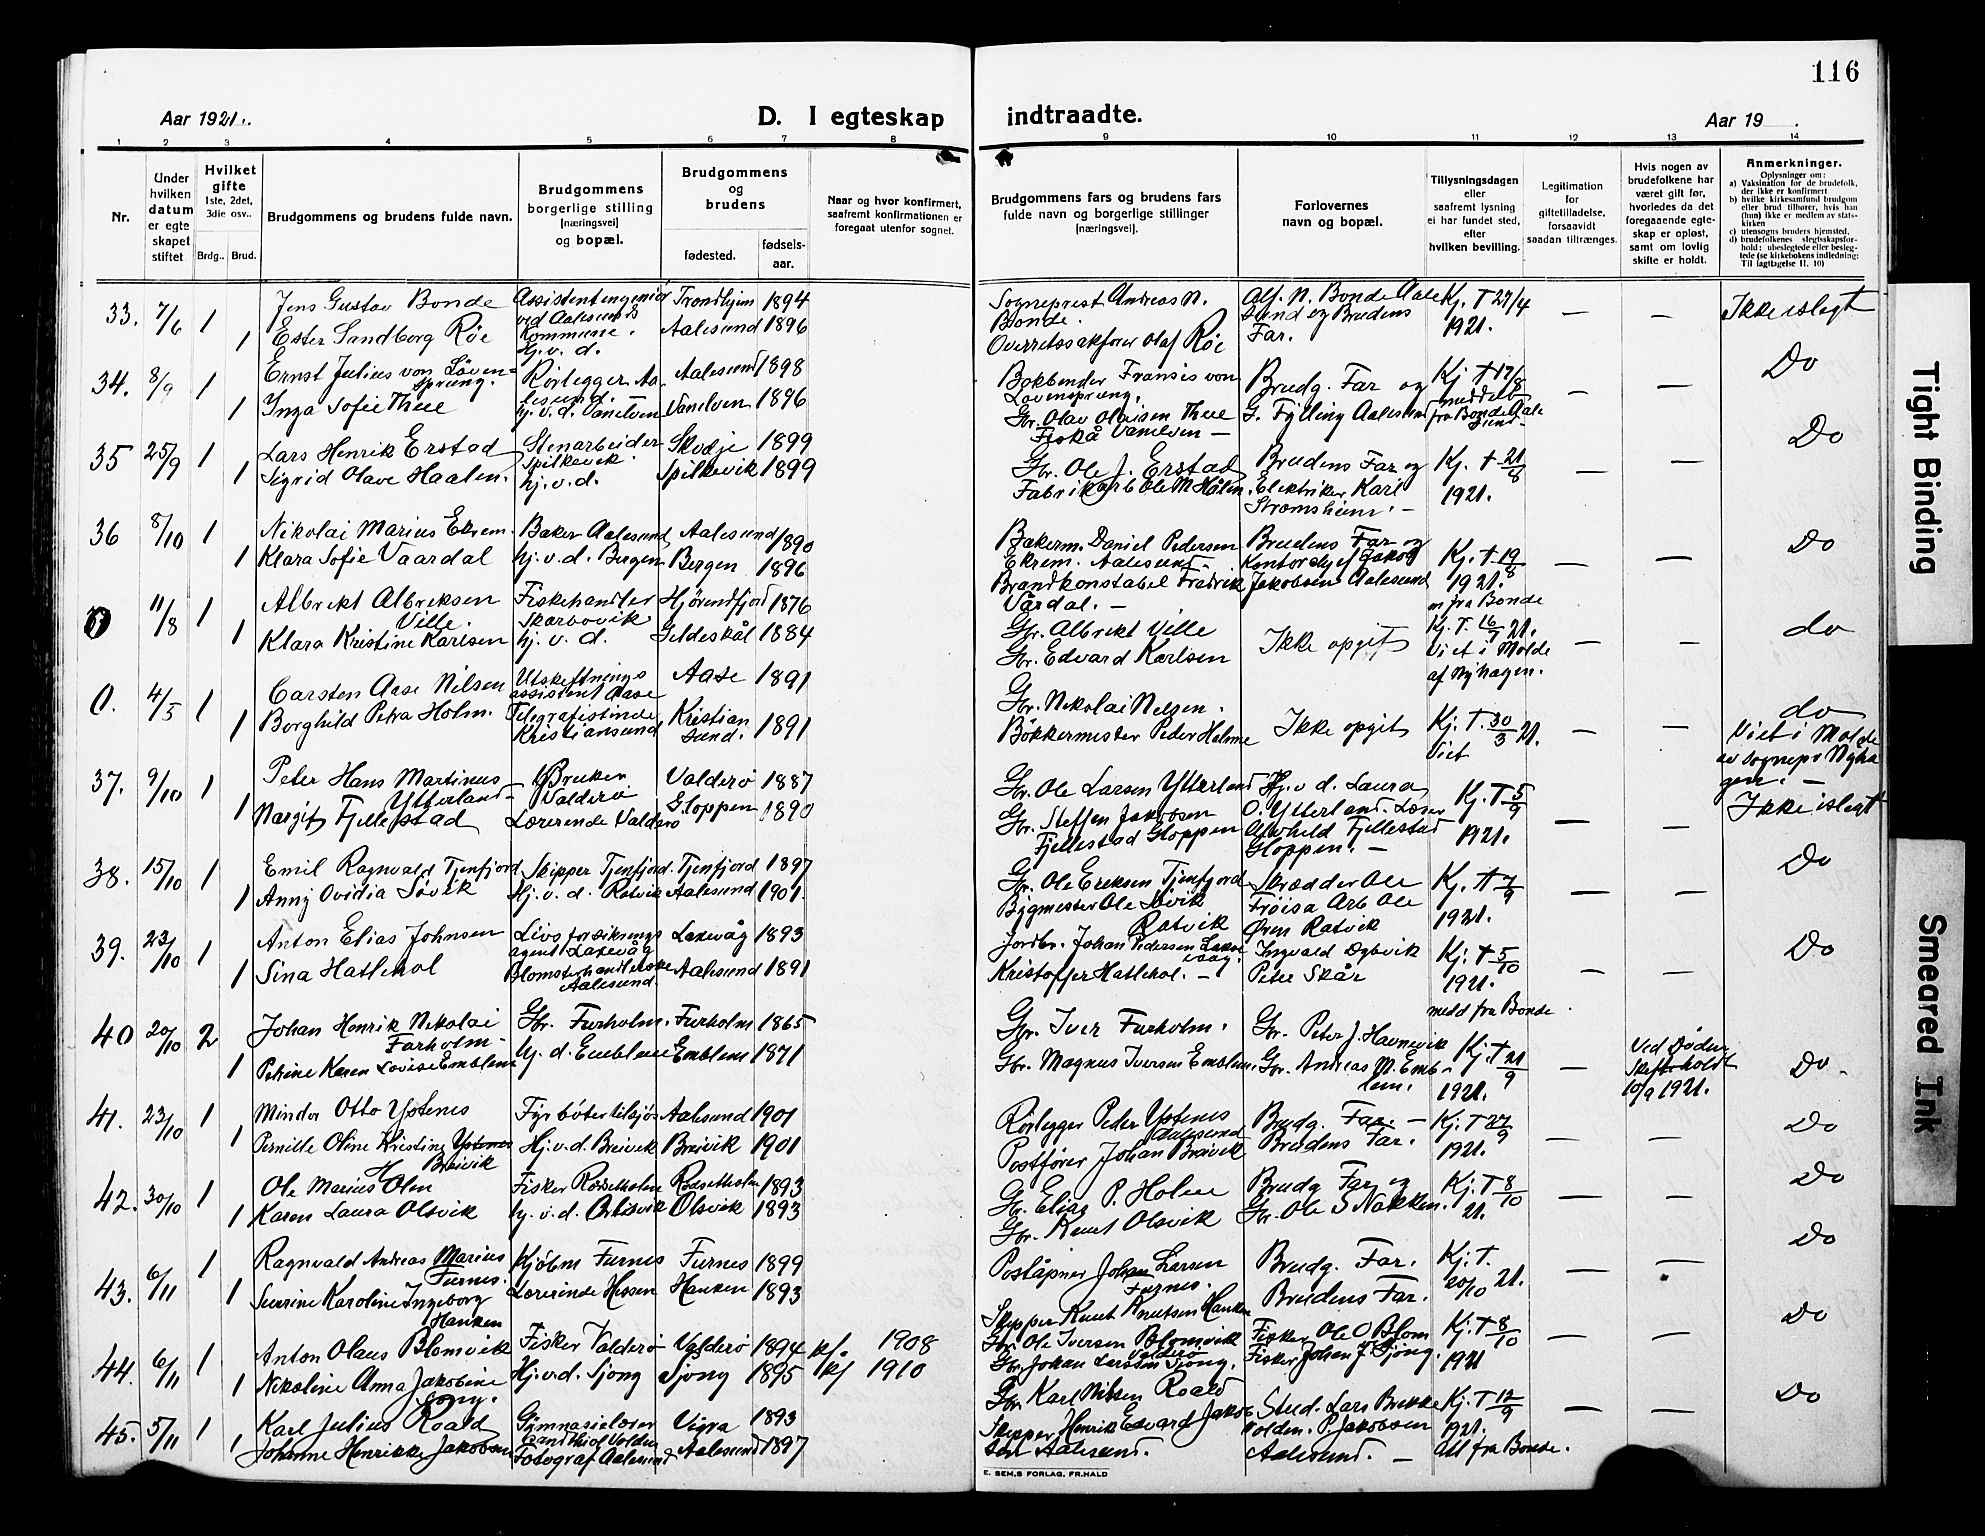 116
Aar 1921.
D. I egteskap
indtraadte.
Aar 19 .
1 2 3 4 5 6 7 8 9 10 11 12 13 14
Nr.
Under hvilken datum er egteskapet stiftet
Hvilket gifte 1ste, 2det, 3die osv..
Brdg.. Brud.
Brudgommens og brudens fulde navn.
Brudgommens borgerlige stilling [næringsvei] og bopæl.
Brudgommens og brudens
fødested.
fødsels-aar.
Naar og hvor konfirmert, saafremt konfirmationen er foregaat utenfor sognet.
Brudgommens fars og brudens fars fulde navn og borgerlige stillinger [næringsvei].
Forlovernes navn og bopæl.
Tillysningsdagen eller saafremt lysning ei har fundet sted, efter hvilken bevilling.
Legitimation for giftetilladelse, forsaavidt saadan tiltrænges.
Hvis nogen av brudefolkene har været gift før, hvorledes da det foregaaende egteskap er opløst, samt om lovlig skifte er holdt.
Anmerkninger.
Oplysninger om:
a) Vaksination for de brudefolk, der ikke er konfirmert
b) hvilke kirkesamfund brudgom eller brud tilhører, hvis han (hun) ikke er medlem av statskirken
c) utensogns bruders hjemsted.
d) brudefolkenes slegtsskapsforhold: ubeslegtede eller beslegtede (se kirkebokens indledning: Til Iagttagelse II. 10)
33. 7/6 1 Jens Gustav Bonde Assistentingeniør ved Aalesunds Kommune. Trondhjem 1894 Sogneprest Andreas N. Bonde. Alf. N. Bonde Aalesund og Brudens Far. Kj. T 27/4 1921. — — Ikkeislegt
1 Ester Sandborg Röe Hj. v. d. Aalesund 1896 Overretssakfører Olaf Röe
34. 8/9 1 Ernst Julius von Lövensprung. Rörlegger Aalesund. — Aalesund 1898 Bokbinder Fransis von Lovensprung. Brudg. Far og G. Fylling Aalesund Kj. T 17/8 meddelt fra Bonde Aalesund — — Do
1 Inga Sofie Thue hj. v. d. Vanelven Vanelven 1896 Gbr. Olav Olaisen Thue Fiskå Vanelven —
35 25/9 1 Lars Henrik Erstad Stenarbeider Spilkevik. Skodje 1899 Gbr. Ole J. Erstad Brudens Far og Elektriker Karl Stromsheim. — Kj. T 21/8 1921. — — Do
1 Sigrid Olave Haalen. hj. v. d. Spilkevik 1899 Fabrikarb Ole M Hålen.
36 8/10 1 Nikolai Marius Ekrem. Baker Aalesund Aalesund 1890 Bakerm. Daniel Pedersen Ekrem. Aalesund. Brudens Far og Kontorchef Jakob Jakobsen Aalesund Kj. T 19/8 1921. m fra Bonde — — Do
1 Klara Sofie Vaardal hj. v. d. Bergen Bergen 1896 Brandkonstabel Fredrik Vårdal. —
0 11/8 1 Albrekt Albreksen Ville. Fiskehandler Skarbovik Hjörendfjord 1876 Gbr. Albrekt Ville Ikke opgit Kj. T. 16/7 21. Viet i Molde af Nyhagen. — — do
1 Klara Kristine Karlsen hj. v. d. Gildeskål 1884 Gbr. Edvard Karlsen
0. 4/5 1 Carsten Aase Nilsen Utskiftnings assistent Aase Aase 1891 Gbr. Nikolai Nilsen. Ikke opgit Kj. T. 30/3 21. Viet — — do Viet i Molde av sognepr Nyhagen. —
1 Borghild Petra Holm. Telegrafistinde Kristiansund Kristiansund. 1891 Bökkermester Peder Holm
37. 9/10 1 Peter Hans Martinus Ytterland — Gbruker Valderö Valderö 1887 Gbr. Ole Larsen Ytterland Hj. v. d. Laura O. Ytterland. Kj. T 5/9 1921. — — Ikke islegt
1 Margit Fjellestad Lærerinde Valderö Gloppen 1890 Gbr. Steffen Jakobsen Fjellestad Gloppen Fjellestad Gloppen. —
38. 15/10 1 Emil Ragnvald Tjenfjord Skipper Tjenfjord. Tjenfjord 1897 Gbr. Ole Eriksen Tjenfjord Skrædder Ole Fröisa Arb Ole Ören Ratvik Kj. T 7/9 1921. — — Do
1 Anny Ovidia Sövik Hj. v. d. Ratvik Aalesund 1901. Bygmester Ole Sövik Ratvik
39. 23/10 1 Anton Elias Johnsen Livsforsikrings agent Laxevåg Laxevåg 1893 Jordbr. Johan Pedersen Laxevaag. Ingvald Dybvik Peter Skår Kj. T 5/10 1921. medd fra Bonde — — Do
1 Sina Hatlehol Blomsterhandlerske Aalesund. Aalesund 1891 Kristoffer Hatlehol. —
40 20/10 2 Johan Henrik Nikolai Furholm — Gbr. Furholm. Furholm 1865 Gbr. Iver Furholm. Gbr. Peter J. Havnevik Kj. T 21/9 1921. — Ved Döden Skifte holdt 10/9 1921. Do
1 Petrine Karen Lovise Emblem Hj. d. Emblem Emblem 1871 Gbr. Magnus Iversen Emblem. Gbr. Andreas M. Emblem.
41. 23/10 1 Mindor Otto Ystenes Fyrböter tilsjös Aalesund 1901 Rörlegger Peder Ystenes Aalesund Brudg. Far. — Kj. T 27/9 1921. — — Do
1 Pernille Oline Kristine Ystenes Breivik Hj. v. d. Breivik Breivik 1901 Postförer Johan Breivik Brudens Far.
42. 30/10 1 Ole Marius Olm Fisker Rösetholm Rösetholm 1893 Gbr. Elias P. Holm Brudg Far og Kj. T 8/10 21. — — Do
1 Karen Laura Olsvik hj. v. d. Olsvik Olsvik 1893 Gbr. Knut Olsvik Gbr. Ole S Nakken.
43. 6/11 1 Ragnvald Andreas Marius Furnes. Kjöbm Furnes Furnes 1899 Poståpner Johan Larsen Furnes. Brudg. Far. Kj. T. 20/10 21. — — Do
1 Severine Karoline Ingeborg Hanken Lærerinde Hessen Hanken 1893 Skipper Knut Knutsen Hanken Brudens Far.
44. 6/11 1 Anton Olaus Blomvik Fisker Valderö Valderö 1894 kf. 1908 Gbr. Ole Iversen Blomvik Valderö Fisker Ole O Blomvik Kj. T 8/10 1921 — — Do
1 Nikoline Anna Jakobine Song. Hj. v. d. Sjong Sjong 1895 kf 1910 Gbr. Johan Larsen Sjong. Fisker Johan J. Sjong.
45. 5/11 1 Karl Julius Roald Gymnasielærer Cand Volden Vigra 1893 Gbr. Karl Nilsen Roald Stud. Lars Brekke Volden. P. Jakobsen Aalesund. — Kj. T 12/9 1921. Att fra Bonde. — — Do
1 Johanne Henrikke Jakobsen Fotograf Aalesund Aalesund 1897 Skipper Henrik Edvard Jakobsen Aalesund.
E. SEM.S FORLAG, FR.HALD
Tight Binding
Smeared Ink